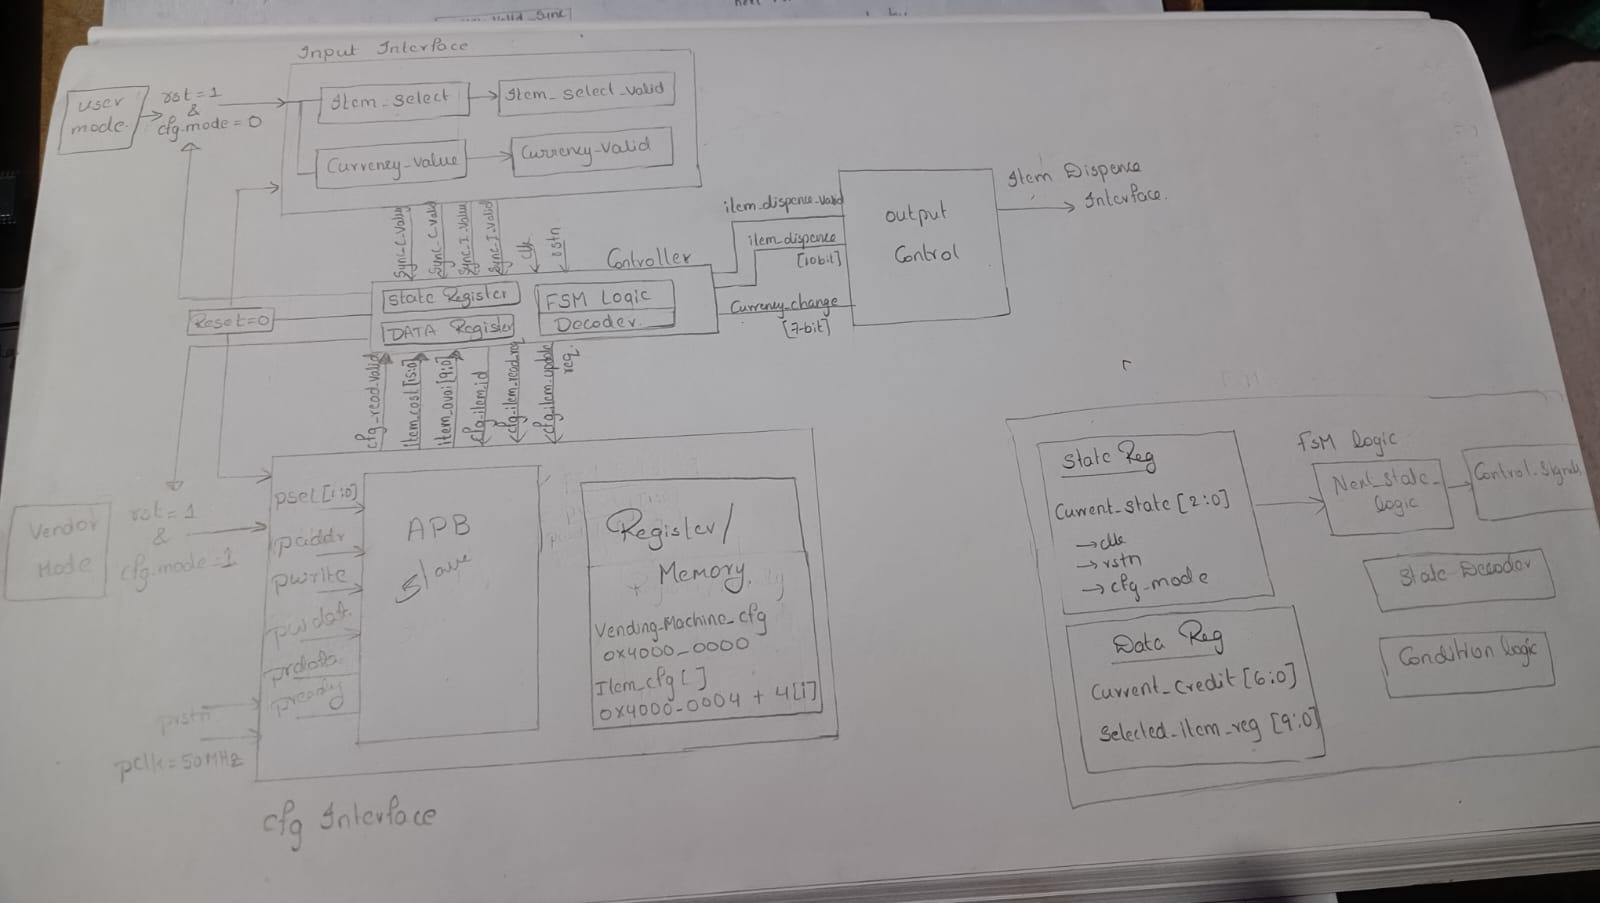 Input Interface
User
mode.
rst = 1
&
cfg.mode = 0
Item_select
Item_select_valid
Currency_value
Currency_valid
Sync_C_Valu
Sync_C_Valid
Sync_I_Value
Sync_I_Valid
clk
rstn
Controller
State Register
DATA Register
FSM Logic
Decoder.
Reset=0
item_dispence_valid
item_dispence
[10bit]
Currency_change
[7-bit]
output
Control
Item Dispence
Interface.
cfg_read_valid
item_cost[15:0]
item_avai[9:0]
cfg_item_id
cfg_item_read_req
cfg_item_update
req.
Vendor
Mode
rst = 1
&
cfg.mode=1
psel[1:0]
paddr
pwrite
pwdat.
prdata
pready
prstn
pclk=50MHz
APB
slave
Register/
Memory.
Vending_Machine_cfg
0x4000_0000
Item_cfg[]
0x4000_0004 + 4[i]
cfg Interface
State Reg
Current_state [2:0]
→clk
→rstn
→cfg_mode
Data Reg
Current_Credit [6:0]
Selected_item_reg [9:0]
FSM logic
Next_state_
logic
Control_Signals
State Decoder
Condition logic